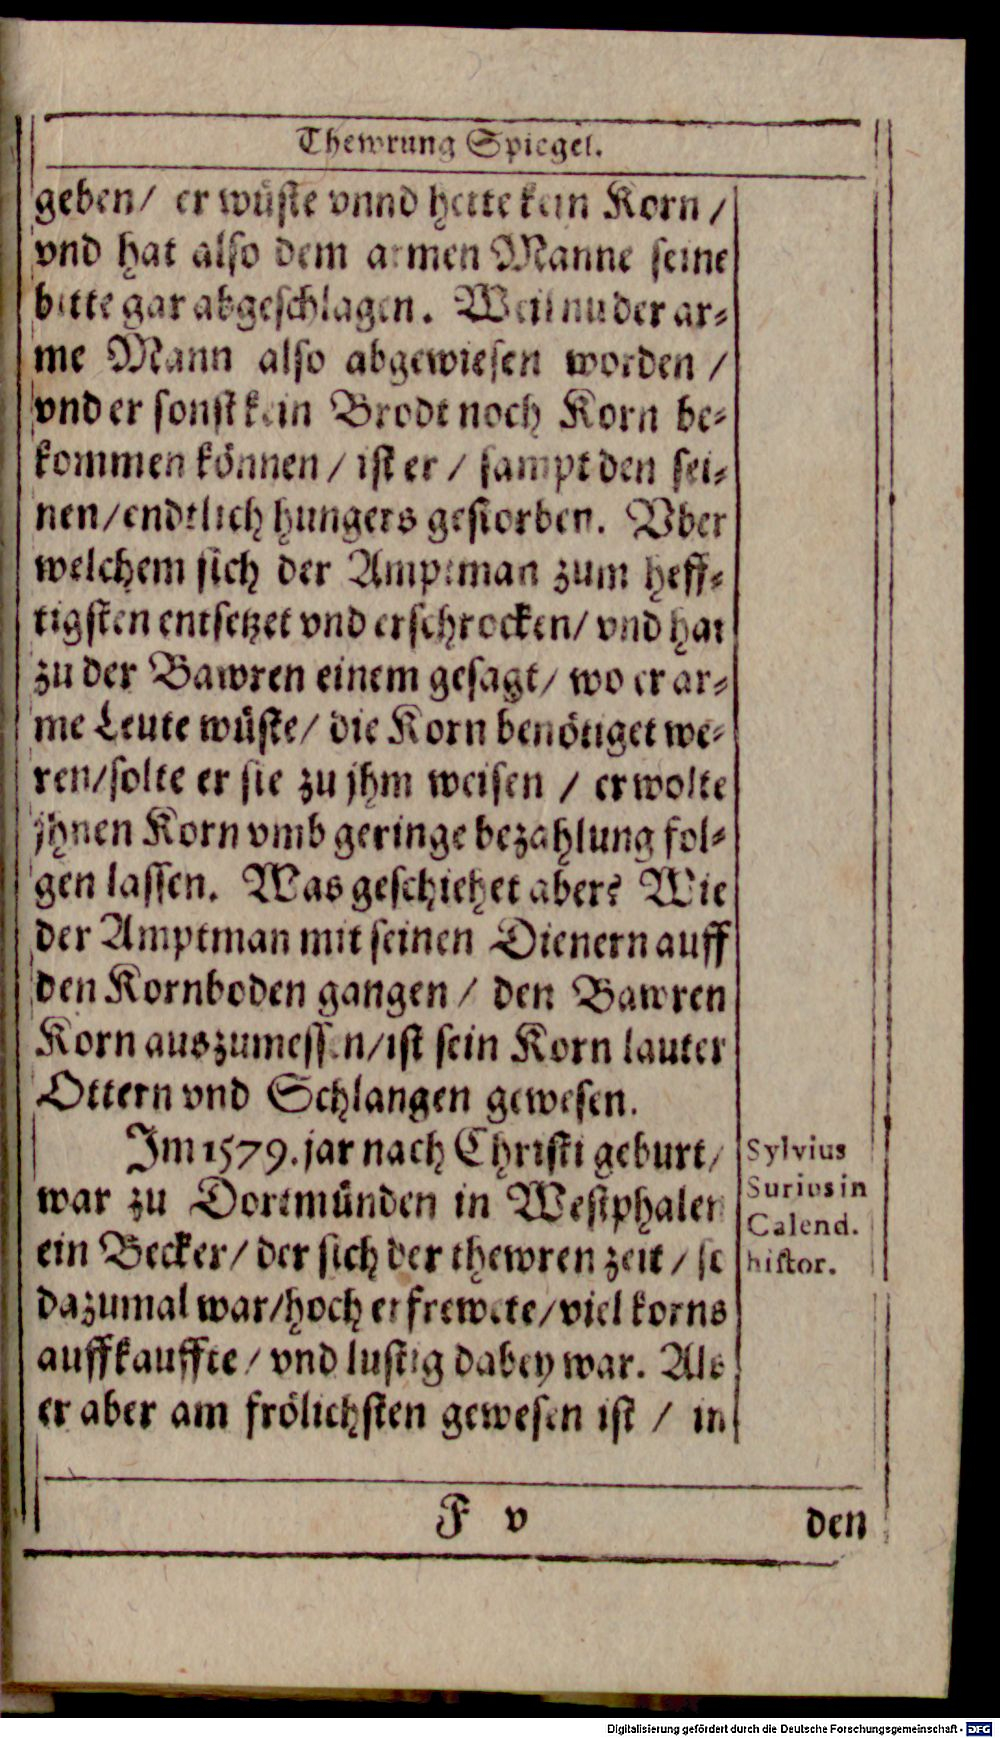 Thewrung Spiegel.
geben/ er wüste vnnd hette kein Korn/
vnd hat also dem armen Manne seine
bitte gar abgeschlagen. Weil nu der ar-
me Mann also abgewiesen worden/
vnd er sonst kein Brodt noch Korn be-
kommen können/ ist er/ sampt den sei-
nen/endtlich hungers gestorben. Vber
welchem sich der Amptman zum heff-
tigsten entsetzet vnd erschrocken/ vnd hat
zu der Bawren einem gesagt/ wo er ar-
me Leute wüste/ die Korn benötiget we-
ren/solte er sie zu jhm weisen / er wolte
jhnen Korn vmb geringe bezahlung fol-
gen lassen. Was geschiehet aber? Wie
der Amptman mit seinen Dienern auff
den Kornboden gangen/ den Bawren
Korn auszumessen/ist sein Korn lauter
Ottern vnd Schlangen gewesen.
Im 1579. jar nach Christi geburt/
war zu Dortmünden in Westphalen
ein Becker/ der sich der thewren zeit/ so
dazumal war/hoch erfrewete/viel korns
auffkauffte/ vnd lustig dabey war. Als
er aber am frölichsten gewesen ist / in
Sylvius
Surius in
Calend.
histor.
F v
den
Digitalisierung gefördert durch die Deutsche Forschungsgemeinschaft - DFG